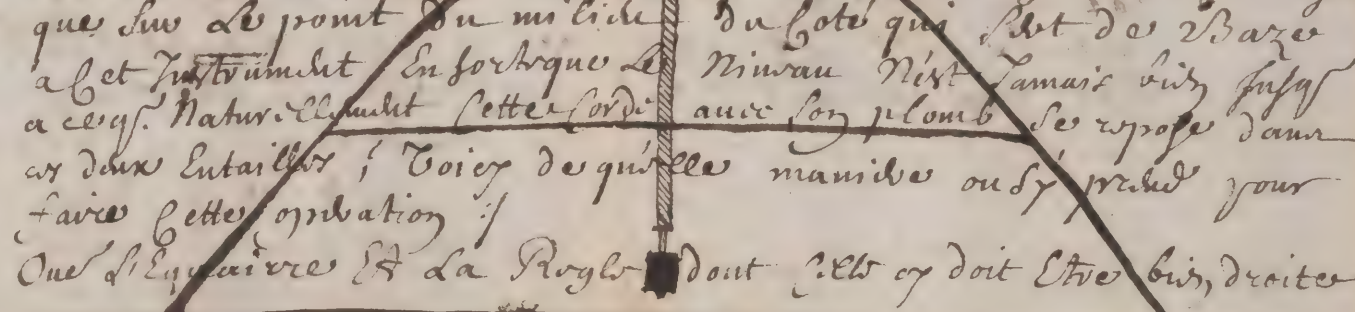 que sur Le point Du milieu Du Coté qui sert de Baze
a Cet Instrument En sorteque Le Niveau N'est Jamais bien Jusqs
a ceqs. Naturellement Cette Corde avec son plomb se repose dans
ces deux Entailles ; Voicy de qu'elle maniere on s'y prend pour
faire Cette operation :/
Que L'Equairre Et La Regle dont Celle cy doit Etre bien, droite